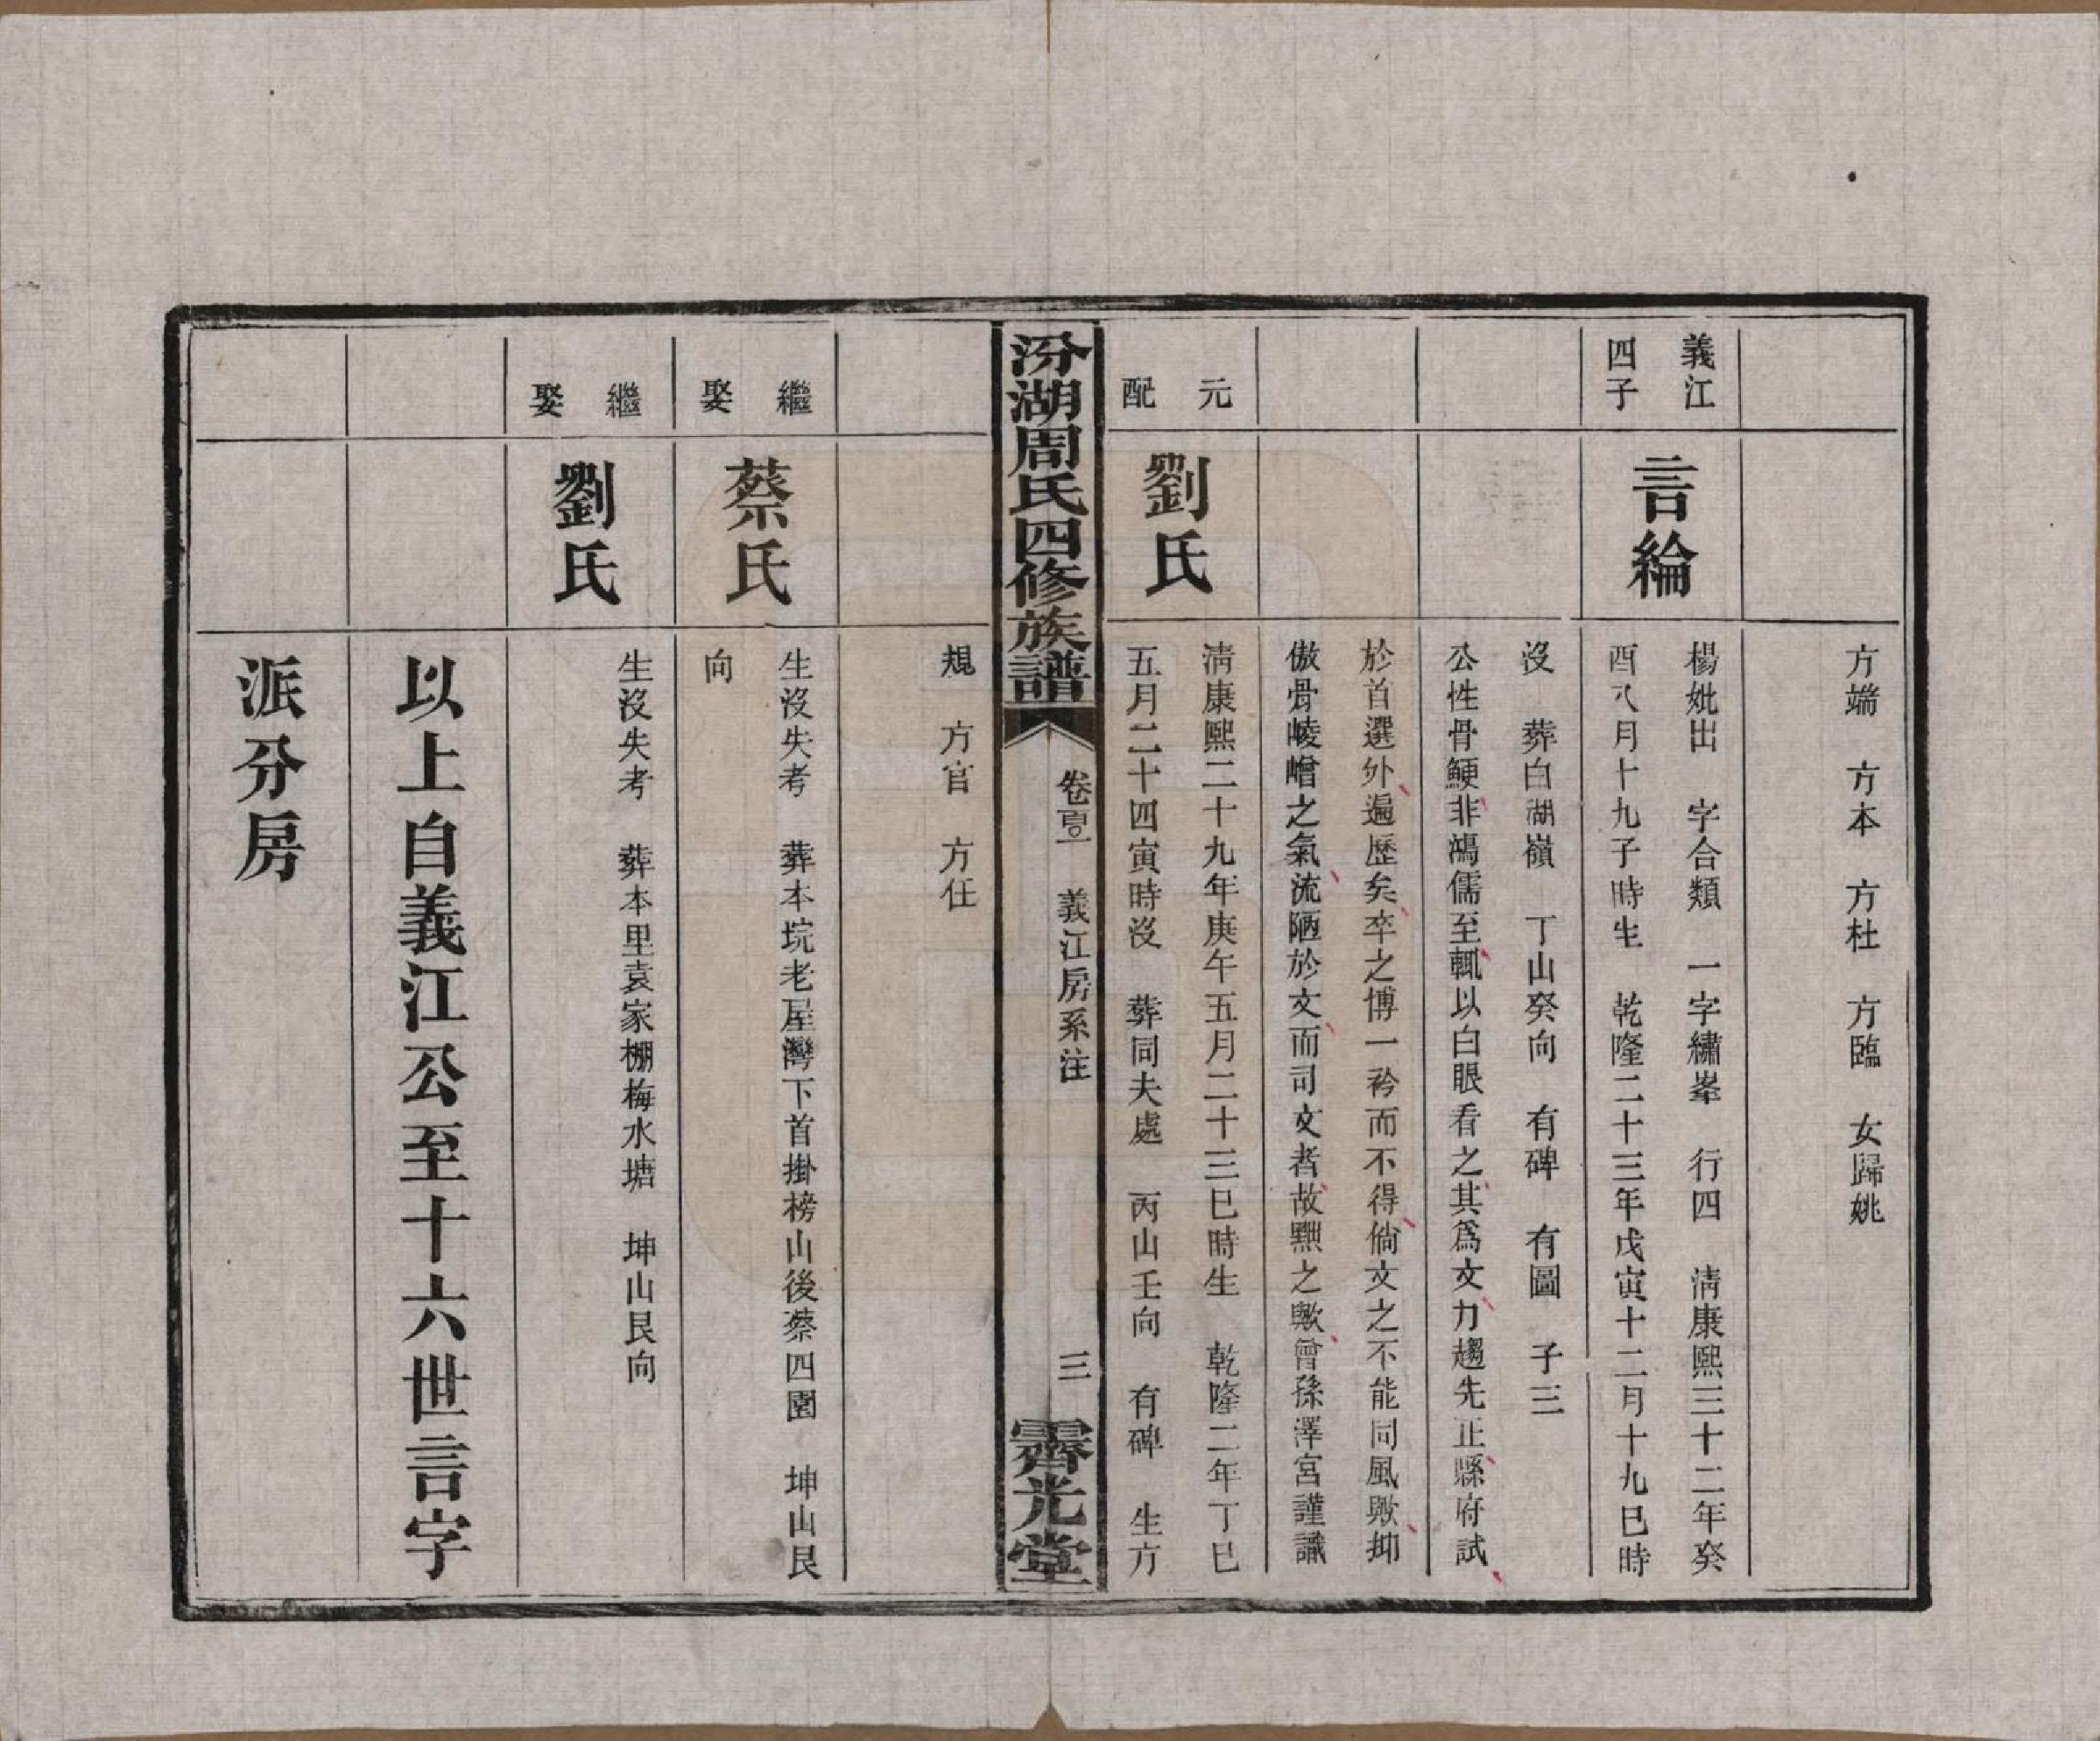 方端　方本　方杜　方臨　女歸姚
義江
四子
言綸
楊妣出　字合類　一字繡峯　行四　清康熙三十二年癸
酉八月十九子時生　乾隆二十三年戊寅十二月十九巳時
沒　葬白湖嶺　丁山癸向　有碑　有圖　子三
公性骨鯁非鴻儒至輒以白眼看之其爲文力趨先正縣府試
於首選外遍歷矣卒之博一衿而不得倘文之不能同風歟抑
傲骨崚嶒之氣流陋於文而司文者故黜之歟曾孫澤宮謹識
元
配
劉氏
清康熙二十九年庚午五月二十三巳時生　乾隆二年丁巳
五月二十四寅時沒　葬同夫處　丙山壬向　有碑　生方
汾湖周氏四修族譜
義江房系注
三
霽光堂
規　方官　方任
繼
娶
蔡氏
生沒失考　葬本坑老屋灣下首掛榜山後蔡四園　坤山艮
向
繼
娶
劉氏
生沒失考　葬本里袁家棚梅水塘　坤山艮向
以上自義江公至十六世言字
派分房